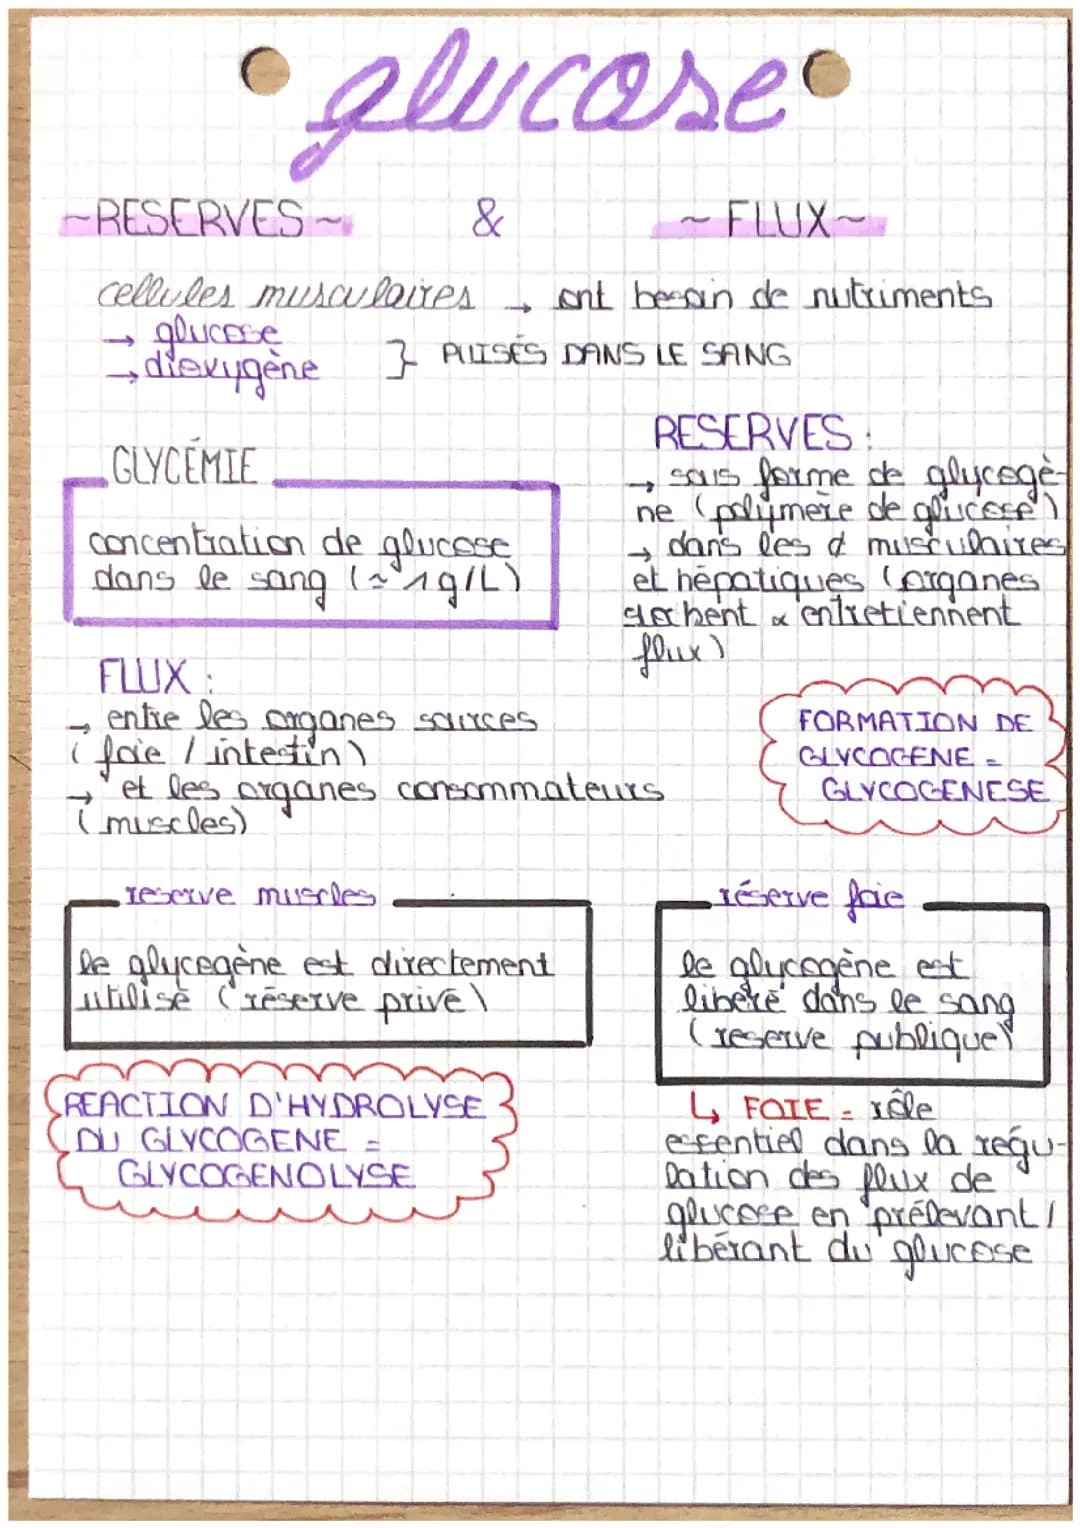 glucose
~RESERVES~ & ~FLUX~
cellules musculaires → ont besoin de nutriments
→ glucose
→ dioxygène } PUISÉS DANS LE SANG
GLYCÉMIE
concentration de glucose
dans le sang (≃ 1g/L)
RESERVES :
→ sous forme de glycogè-
ne (polymère de glucose)
→ dans les ¢ musculaires
et hépatiques (organes
stockent & entretiennent
flux)
FLUX :
→ entre les organes sources
(foie / intestin)
→ et les organes consommateurs
(muscles)
FORMATION DE
GLYCOGENE =
GLYCOGENESE
reserve muscles
le glycogène est directement
utilisé (réserve privé)
réserve foie
le glycogène est
libéré dans le sang
(reserve publique)
REACTION D'HYDROLYSE
DU GLYCOGENE =
GLYCOGENOLYSE
↳ FOIE = rôle
essentiel dans la régu-
lation des flux de
glucose en prélevant /
libérant du glucose